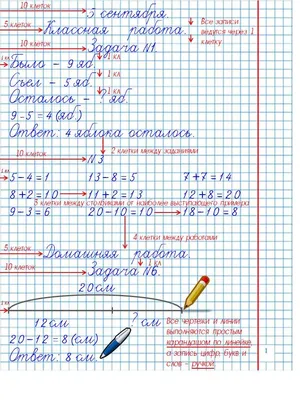 10 клеток 5 сентября.
5 клеток Классная работа.
Все записи
ведутся через 1
клетку
10 клеток Задача №1.
1 кл Было - 9 яб. 1 кл
Съел - 5 яб. 1 кл
Осталось - ? яб. 1 кл
9 - 5 = 4 (яб.)
Ответ: 4 яблока осталось.
2 клетки между заданиями
10 клеток №3
5 - 4 = 1 13 - 8 = 5 7 + 7 = 14
8 + 2 = 10 11 + 2 = 13 12 + 8 = 20
3 клетки между столбиками от наиболее выступающего примера
9 - 3 = 6 20 - 10 = 10 18 - 10 = 8
4 клетки между работами
5 клеток Домашняя работа.
1 кл
10 клеток Задача №6.
20 см
12 см ? см
20 - 12 = 8 (см)
Ответ: 8 см.
Все чертежи и линии
выполняются простым
карандашом по линейке,
а запись цифр, букв и
слов - ручкой.